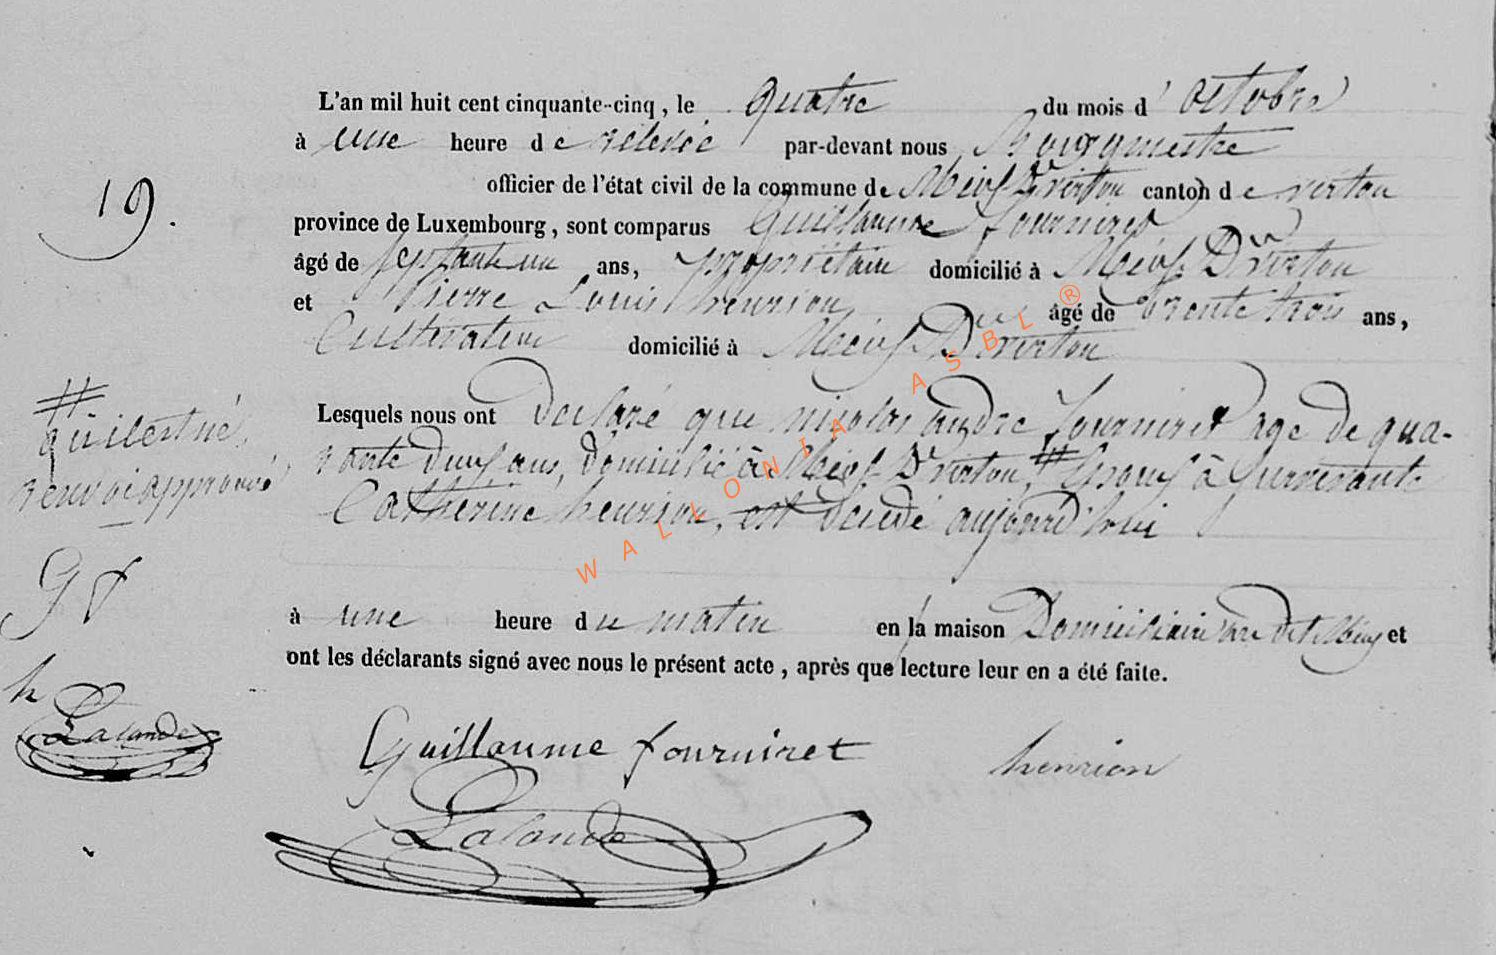 19.
L'an mil huit cent cinquante-cinq, le quatre du mois d'octobre
à une heure de relevée par-devant nous Bourgmestre
officier de l'état civil de la commune de Meix Dt virton canton de virton
province de Luxembourg, sont comparus Guillaume fourniret
âgé de septante un ans, propriétaire domicilié à Meix Dt virton
et Pierre Louis henrion âgé de trente trois ans,
Cultivateur domicilié à Meix Dt virton
Lesquels nous ont Déclaré que nicolas andre fourniret age de qua-
rante deux ans, domicilié à Meix Dt virton, # Epoux à survivante
Catherine henrion, est décédé aujourd'hui
à une heure du matin en sa maison Domiciliaire dit Meix et
ont les déclarants signé avec nous le présent acte, après que lecture leur en a été faite.
# qu il est né,
renvoi approuvé
G f
h
Lalande
Guillaume fourniret
henrion
Lalande
WALLONIA ASBL ®